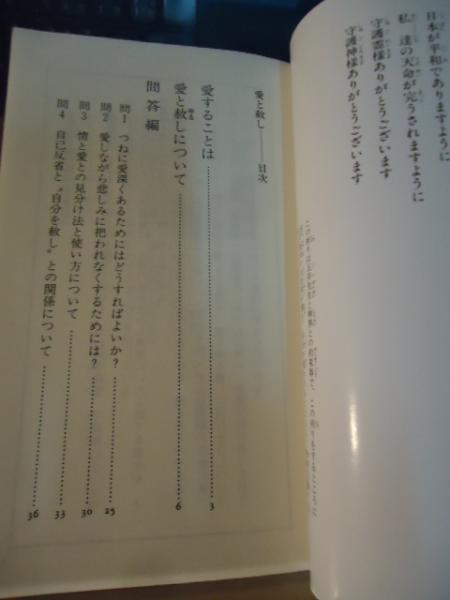 日本が平和でありますように
私達の天命が完うされますように
守護霊様ありがとうございます
守護神様ありがとうございます
愛と赦し――目次
愛することは……………3
愛と赦しについて……………6
問答編
問1 つねに愛深くあるためにはどうすればよいか?……………25
問2 愛しながら悲しみに把われなくするためには?……………30
問3 情と愛との見分け法と使い方について……………33
問4 自己反省と〝自分を赦し〟との関係について……………36